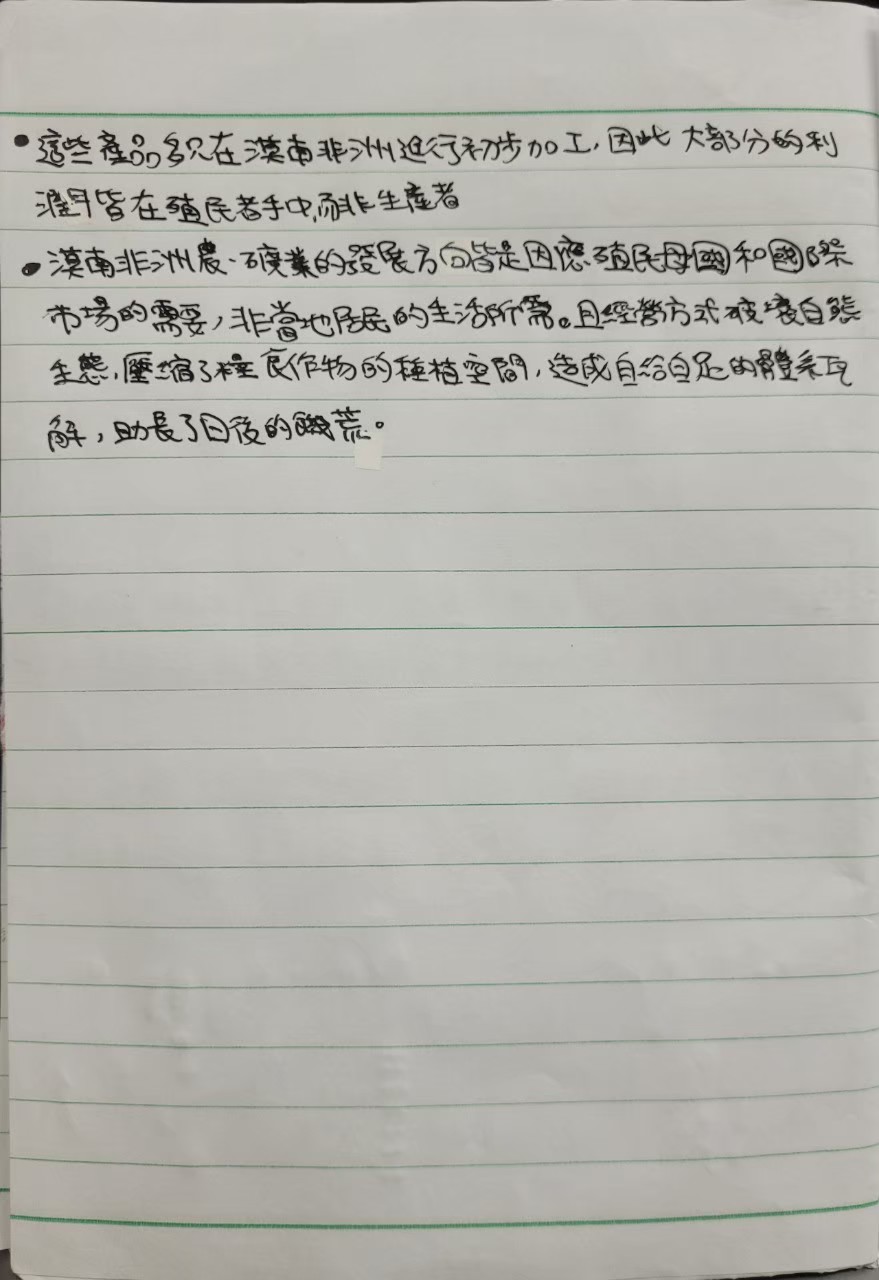 •這些產品多只在漠南非洲進行初步加工,因此大部分的利
潤皆在殖民者手中,而非生產者
•漠南非洲農、礦業的發展方向皆是因應殖民母國和國際
市場的需要,非當地居民的生活所需。且經營方式破壞自態
生態,壓縮了糧食作物的種植空間,造成自給自足的體系瓦
解,助長了日後的饑荒。